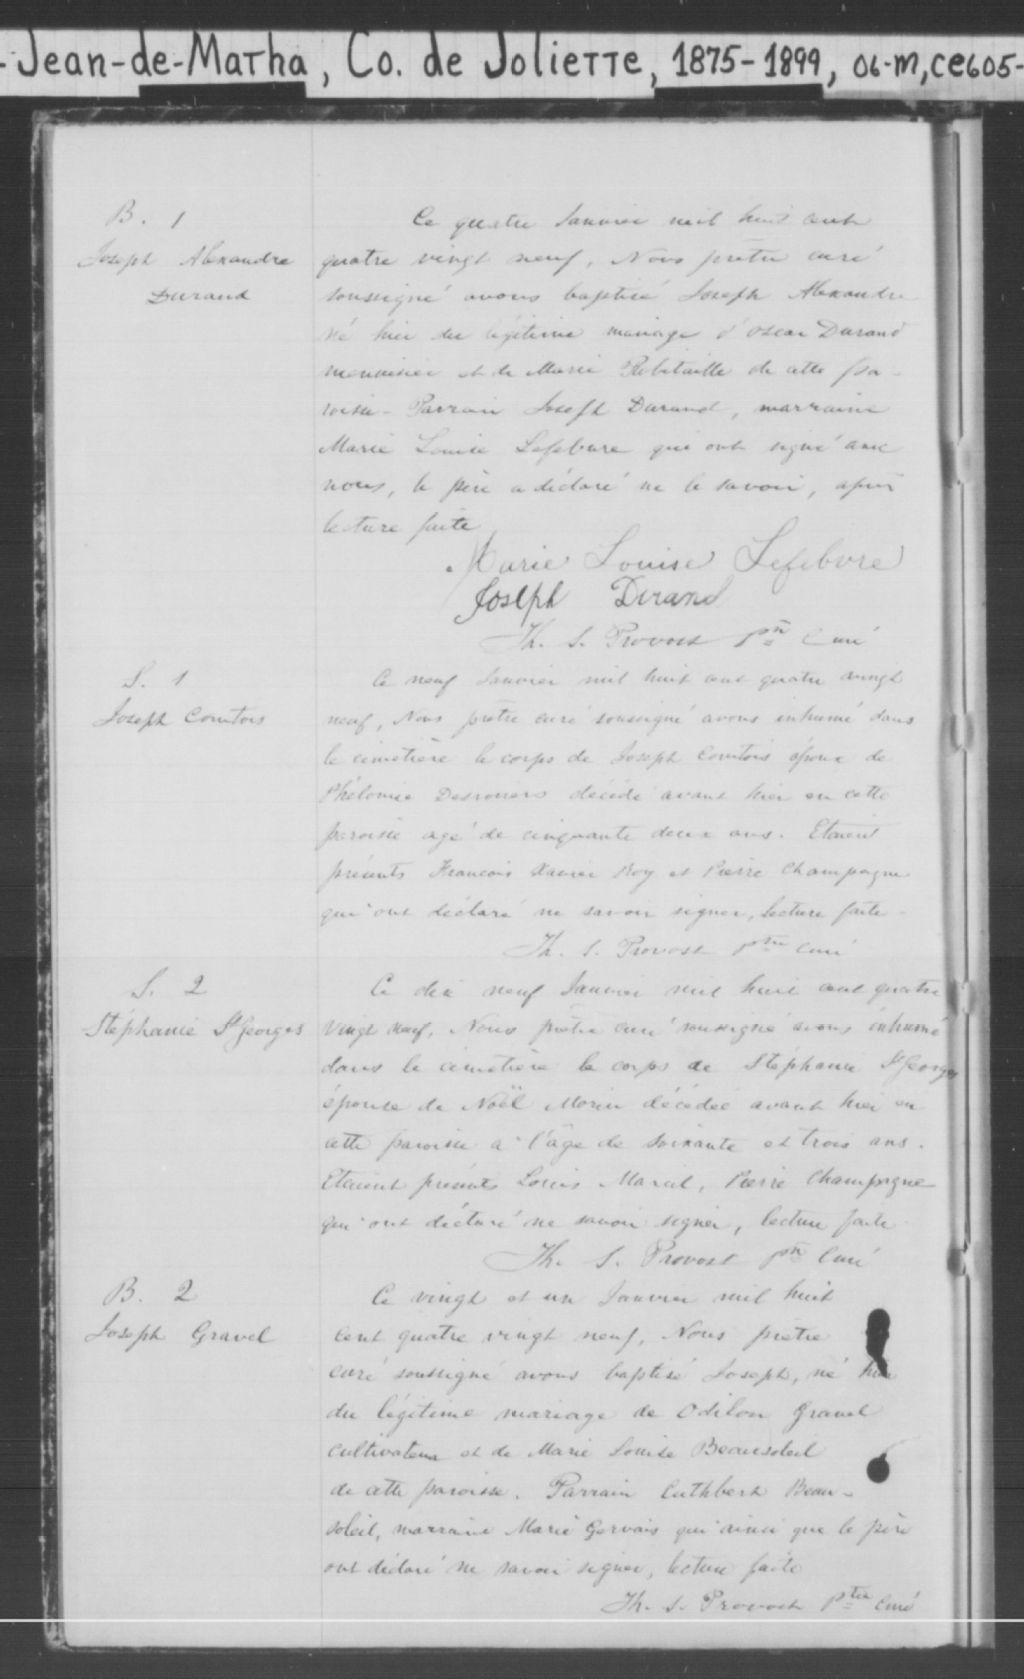 -Jean-de-Matha, Co. de Joliette, 1875-1899, 06-M,CE605-
B. 1
Joseph Alexandre
Durand
Ce quatre Janvier mil huit cent
quatre vingt neuf, Nous prêtre curé
soussigné avons baptisé Joseph Alexandre
né hier du légitime mariage d'Oscar Durand
menuisier et de Marie Robitaille de cette pa-
roisse - Parrain Joseph Durand, marraine
Marie Louise Lefebvre qui ont signé avec
nous, le père a déclaré ne le savoir, après
lecture faite
Marie Louise Lefebvre
Joseph Durand
Th. S. Provost ptre Curé
S. 1
Joseph Comtois
Ce neuf Janvier mil huit cent quatre vingt
neuf, Nous prêtre curé soussigné avons inhumé dans
le cimetière le corps de Joseph Comtois époux de
Philomie Desrosiers décédé avant hier en cette
paroisse agé de cinquante deux ans. Etaient
présents Francois Xavier Roy et Pierre Champagne
qui ont déclaré ne savoir signer, lecture faite -
Th. S. Provost ptre Curé
S. 2
Stéphanie St Georges
Ce dix neuf Janvier mil huit cent quatre
vingt neuf, Nous prêtre curé soussigné avons inhumé
dans le cimetière le corps de Stéphanie St Georges
épouse de Noël Morin décédée avant hier en
cette paroisse a l'âge de soixante et trois ans.
Etaient présents Louis Marcil, Pierre Champagne
qui ont déclaré ne savoir signer, lecture faite
Th. S. Provost ptre Curé
B. 2
Joseph Gravel
Ce vingt et un Janvier mil huit
cent quatre vingt neuf, Nous prêtre
curé soussigné avons baptisé Joseph, né hier
du légitime mariage de Odilon Gravel
cultivateur et de Marie Louise Beausoleil
de cette paroisse. Parrain Cuthbert Beau-
soleil, marraine Marie Gervais qui ainsi que le père
ont déclaré ne savoir signer, lecture faite
Th. S. Provost ptre Curé